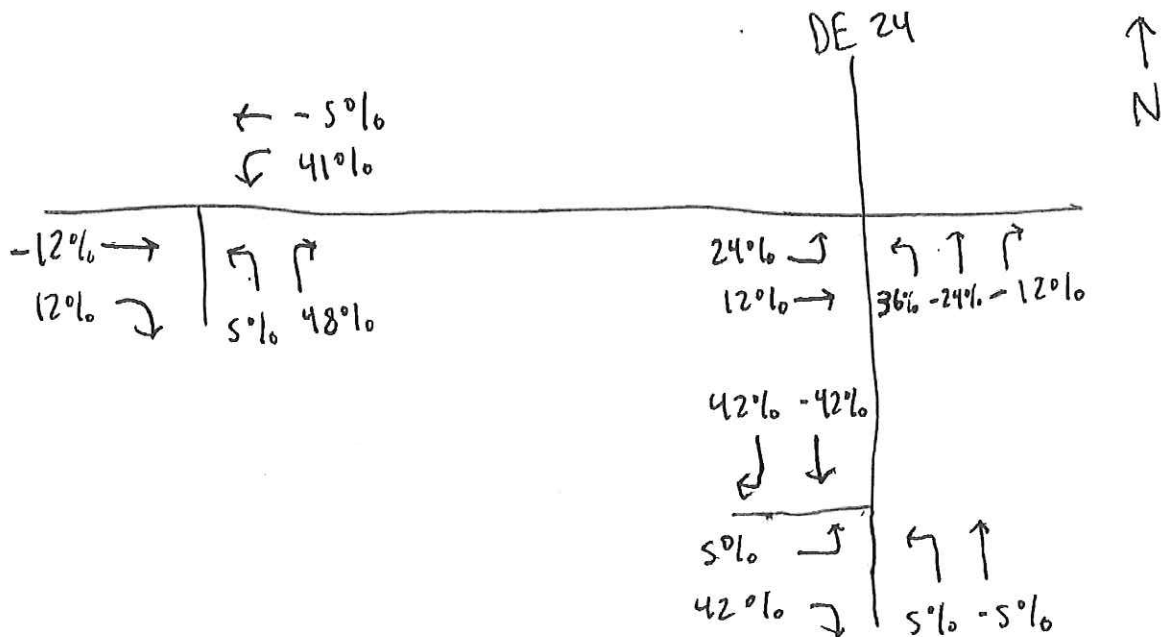 DE 24
N
← - 5%
41%
-12% →
12%
5% 48%
24%
12% →
36% -24% - 12%
42% -42%
5%
42%
5% -5%